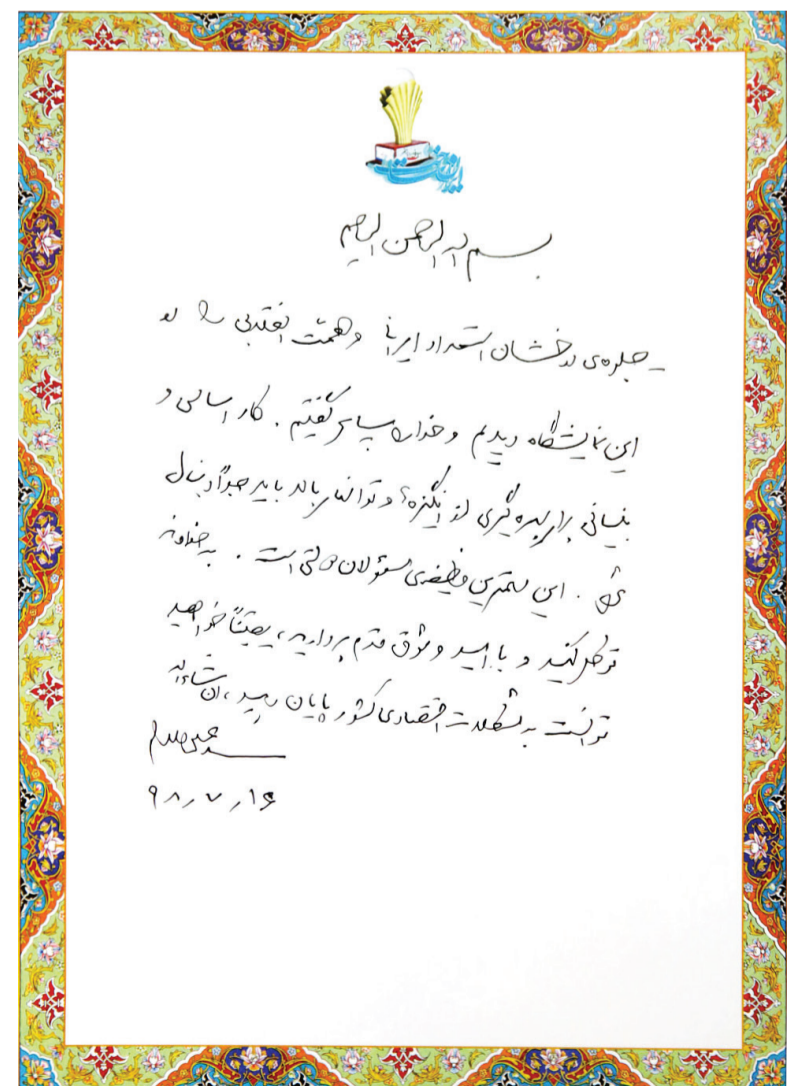 بسم الله الرحمن الرحیم
ـ جلوه‌ی درخشان استعداد ایرانی و همّت انقلابی را در
این نمایشگاه دیدم و خدا را سپاس گفتم. کار اساسی و
بنیانی برای بهره‌گیری از انگیزه‌ها و توانهای بالا باید جدّاً دنبال
شود. این مهمترین وظیفه‌ی مسؤلان دولتی است. به خداوند
توکل کنید و با امید و شوق قدم بردارید، یقیناً خواهید
توانست به مشکلات اقتصادی کشور پایان دهید، ان‌شاءالله
سید علی خامنه‌ای
۹۸٫۷٫۱۶